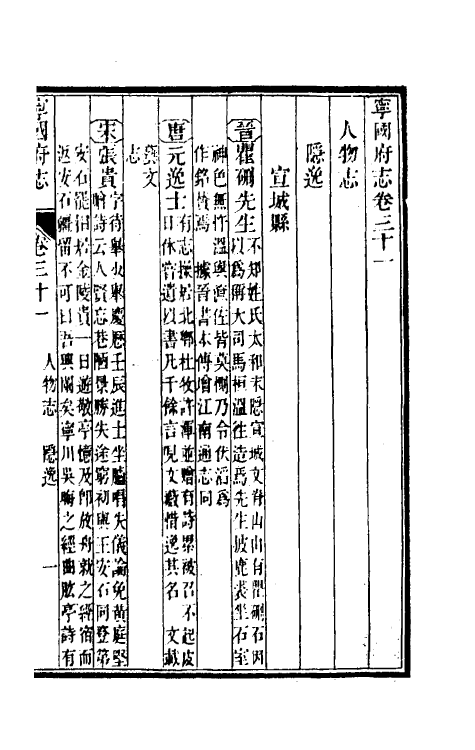 寧國府志卷三十一
人物志
隱逸
宣城縣
晉瞿硎先生不知姓氏太和末隱宣城文脊山山有瞿硎石因
以爲稱大司馬桓溫往造焉先生披鹿裘坐石室
神色無忤溫與僚佐皆莫測乃令伏滔爲
作銘贊焉 據晉書本傳增江南通志同
唐元逸士有志操居北鄉杜牧許渾並贈有詩累被召不起皮
日休嘗遺以書凡千餘言見文藪惜逸其名 文載
藝文
志
宋張貴字待舉火舉慶歷壬辰進士坐臚唱失儀論免黃庭堅
贈詩云人賢忘巷陋景勝失途窮初與王安石同登第
安石罷相居金陵貴一日遊敬亭憶及卽放舟就之經宿而
返安石縶留不可曰吾興闌矣寧川吳晦之經幽肱亭詩有
寧國府志
卷三十一
人物志 隱逸
一